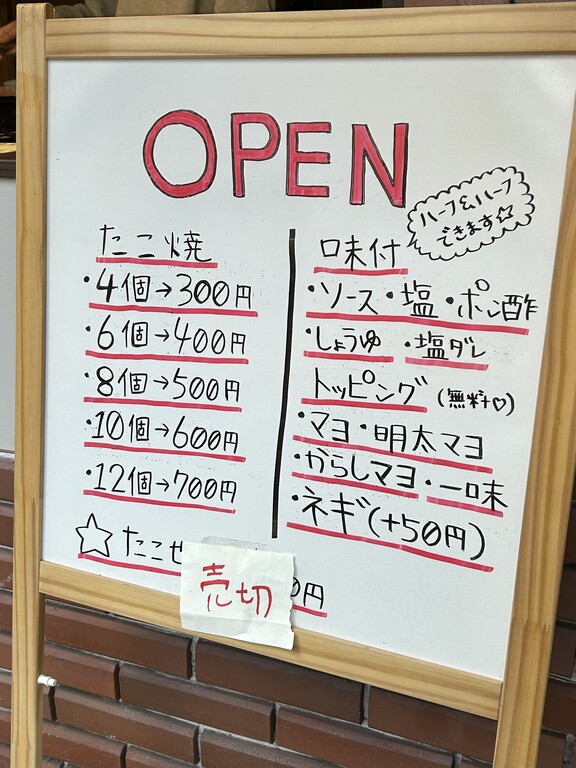 OPEN
ハーフ&ハーフ
できます☆
たこ焼
・4個→300円
・6個→400円
・8個→500円
・10個→600円
・12個→700円
☆たこせ
0円
売切
味付
・ソース・塩・ポン酢
・しょうゆ・塩ダレ
トッピング(無料♡)
・マヨ・明太マヨ
・からしマヨ・一味
・ネギ(+50円)